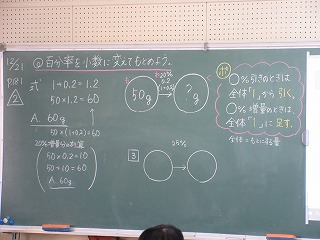 12/21
@百分率を小数に変えてもとめよう。
P.121
2
式
1+0.2=1.2
50×1.2=60
A. 60g
50×(1+0.2)=60
20%増量分の計算
50×0.2=10
50+10=60
A. 60g
50g
20%
0.2
(1+0.2)
?g
3
25%
ポ
○%引きのときは
全体「1」から引く。
○%増量のときは
全体「1」に足す。
全体=もとにする量